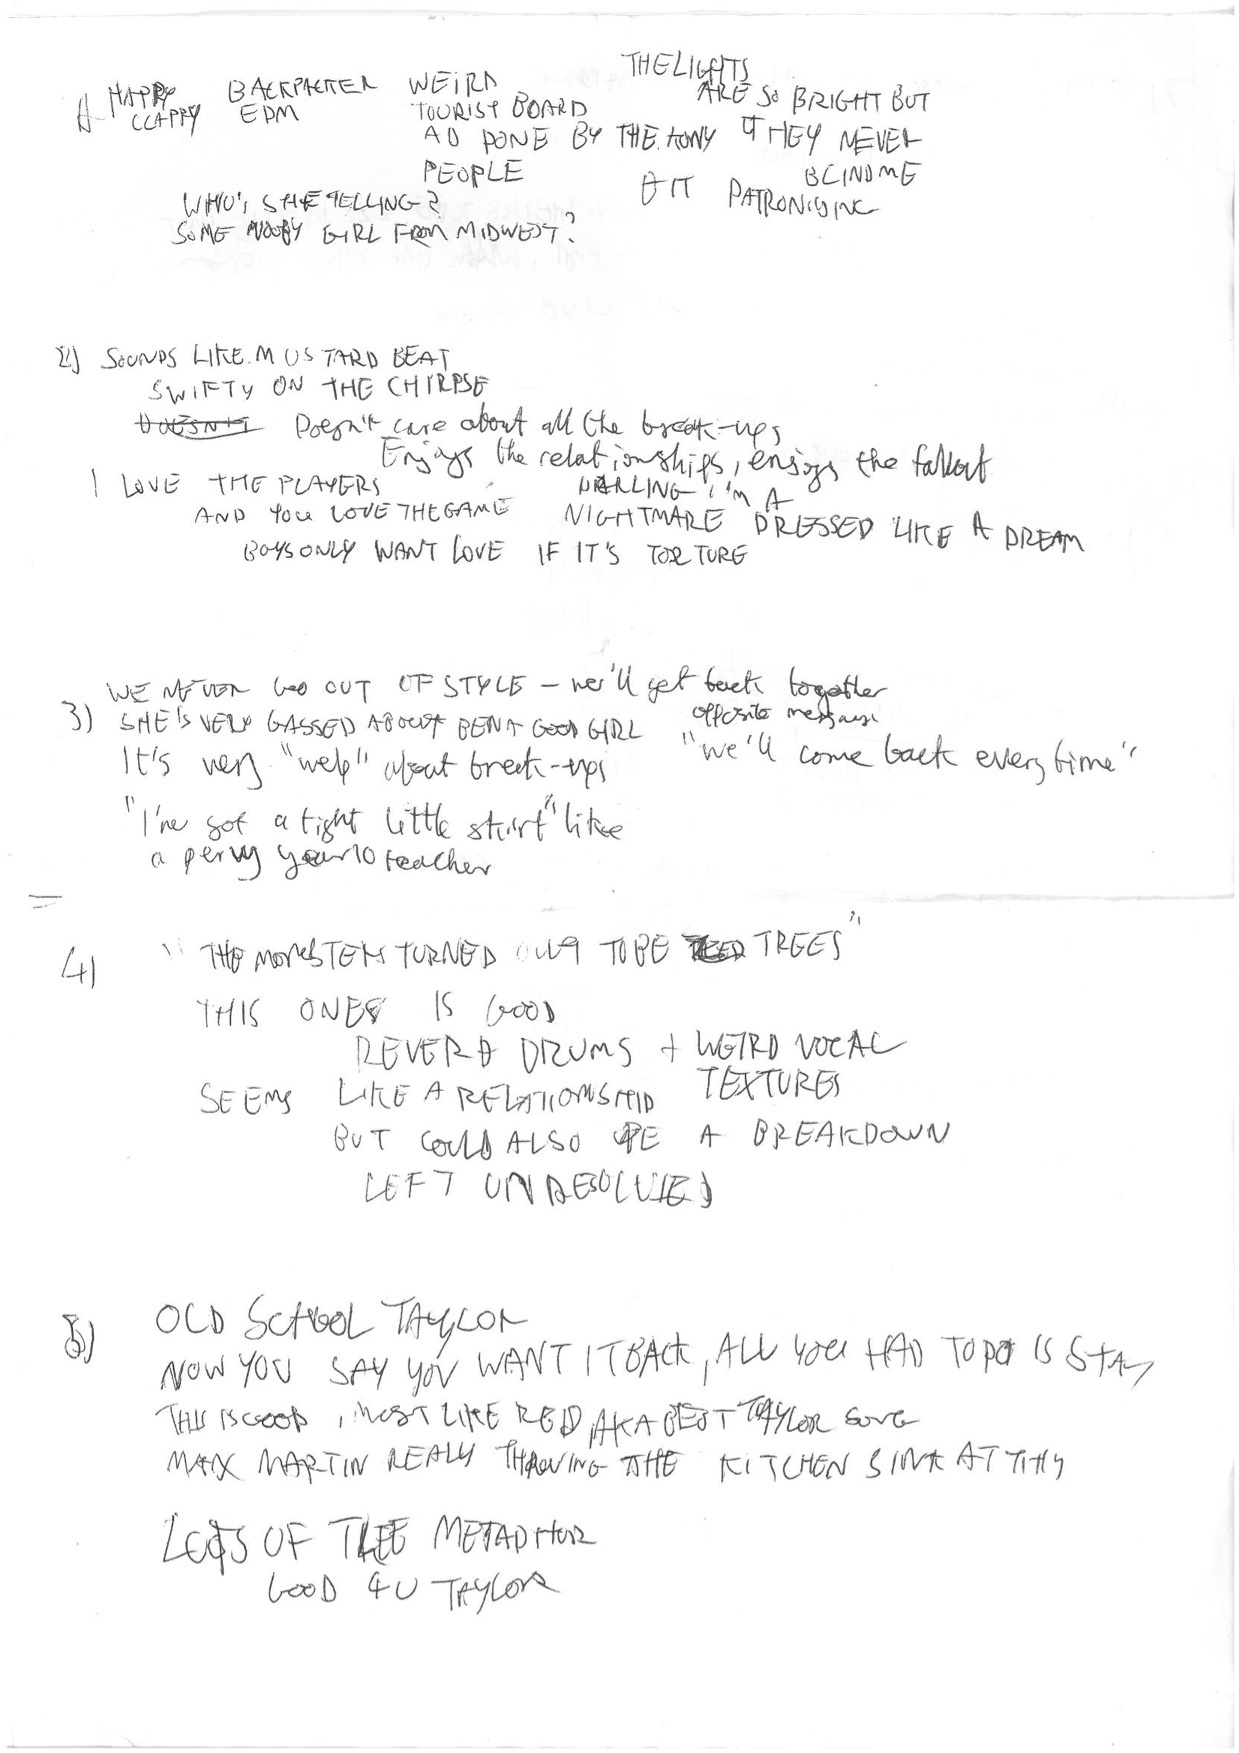 HAPPY CLAPPY
BACKPACKER EDM
WEIRD TOURIST BOARD
AD DONE BY THE KONY
PEOPLE
THE LIGHTS
ARE SO BRIGHT BUT
THEY NEVER
BLIND ME
BIT PATRONISING
WHO'S SHE TELLING?
SOME GIRL FROM MIDWEST?
2) SOUNDS LIKE MUSTARD BEAT
SWIFTY ON THE CHIRPSE
DOESN'T Doesn't care about all the break-ups
Enjoys the relationships, enjoys the fallout
I LOVE THE PLAYERS
AND YOU LOVE THE GAME
DARLING I'M A
NIGHTMARE DRESSED LIKE A DREAM
BOYS ONLY WANT LOVE IF IT'S TORTURE
WE NEVER GO OUT OF STYLE - we'll get back together
3) SHE'S VERY GASSED ABOUT BEIN A GOOD GIRL
opposite message
It's very "welp" about break-ups
"we'll come back every time"
"I've got a tight little skirt" like
a pervy year 10 teacher
4) "THE MONSTERS TURNED OUT TO BE TREES"
THIS ONE IS GOOD
REVERB DRUMS + WEIRD VOCAL
TEXTURES
SEEMS LIKE A RELATIONSHIP
BUT COULD ALSO BE A BREAKDOWN
LEFT UNRESOLVED
5) OLD SCHOOL TAYLOR
NOW YOU SAY YOU WANT IT BACK, ALL YOU HAD TO DO IS STAY
THIS IS GOOD, MOST LIKE RED, AKA BEST TAYLOR SONG
MAX MARTIN REALLY THROWING THE KITCHEN SINK AT THIS
LOTS OF TREE METAPHOR
GOOD 4 U TAYLOR